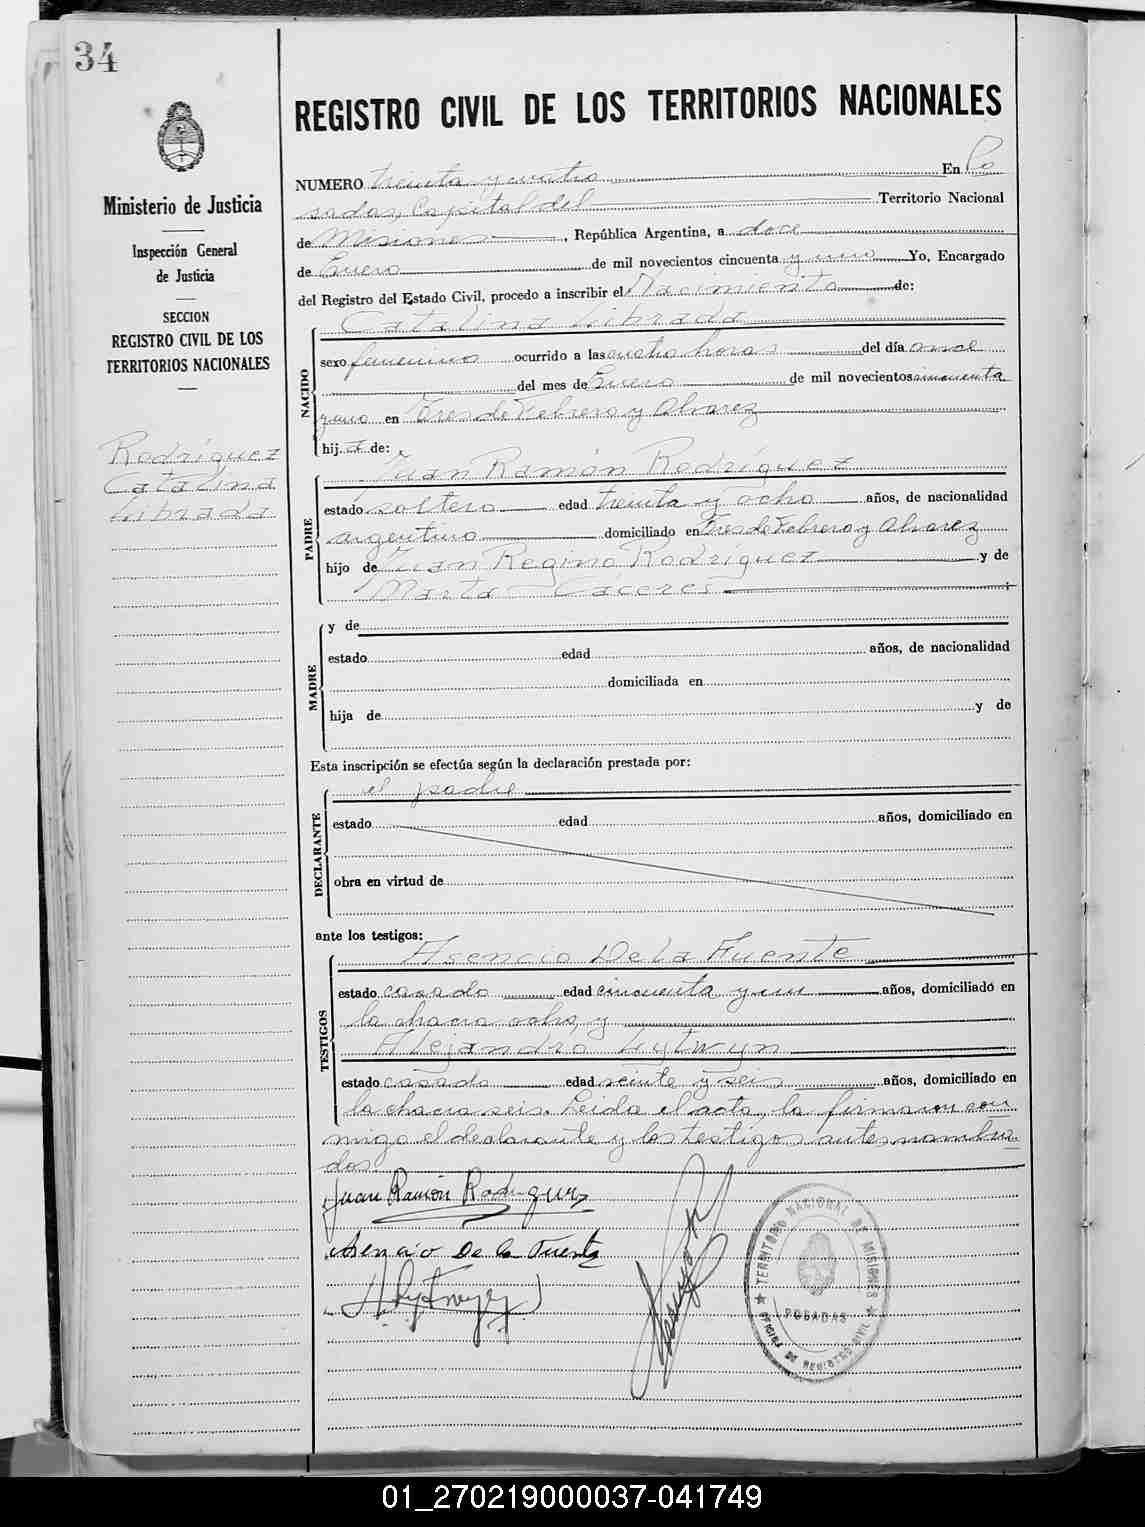 34
Ministerio de Justicia
Inspección General
de Justicia
SECCION
REGISTRO CIVIL DE LOS
TERRITORIOS NACIONALES
Rodríguez
Catalina
Librada
REGISTRO CIVIL DE LOS TERRITORIOS NACIONALES
NUMERO treinta y cuatro En Po
sadas, Capital del Territorio Nacional
de Misiones, República Argentina, a doce
de Enero de mil novecientos cincuenta y uno Yo, Encargado
del Registro del Estado Civil, procedo a inscribir el Nacimiento de:
NACIDO
Catalina Librada
sexo femenino ocurrido a las cuatro horas del día once
del mes de Enero de mil novecientos cincuenta
y uno en Tres de Febrero y Alvarez
hij a de:
PADRE
Juan Ramón Rodríguez
estado soltero edad treinta y ocho años, de nacionalidad
argentino domiciliado en Tres de Febrero y Alvarez
hijo de Juan Regino Rodríguez y de
Marta Cáceres
MADRE
y de
estado edad años, de nacionalidad
domiciliada en
hija de y de
Esta inscripción se efectúa según la declaración prestada por:
DECLARANTE
el padre
estado edad años, domiciliado en
obra en virtud de
ante los testigos:
TESTIGOS
Asencio De La Fuente
estado casado edad cincuenta y un años, domiciliado en
la chacra ocho, y
Alejandro Lytwyn
estado casado edad veinte y seis años, domiciliado en
la chacra seis. Leida el acta, la firmaron con
migo el declarante y los testigos antes nombra
dos.
Juan Ramón Rodriguez
Asencio De la Fuente
TERRITORIO NACIONAL DE MISIONES
POSADAS
OFICINA DE REGISTRO CIVIL
01_270219000037-041749